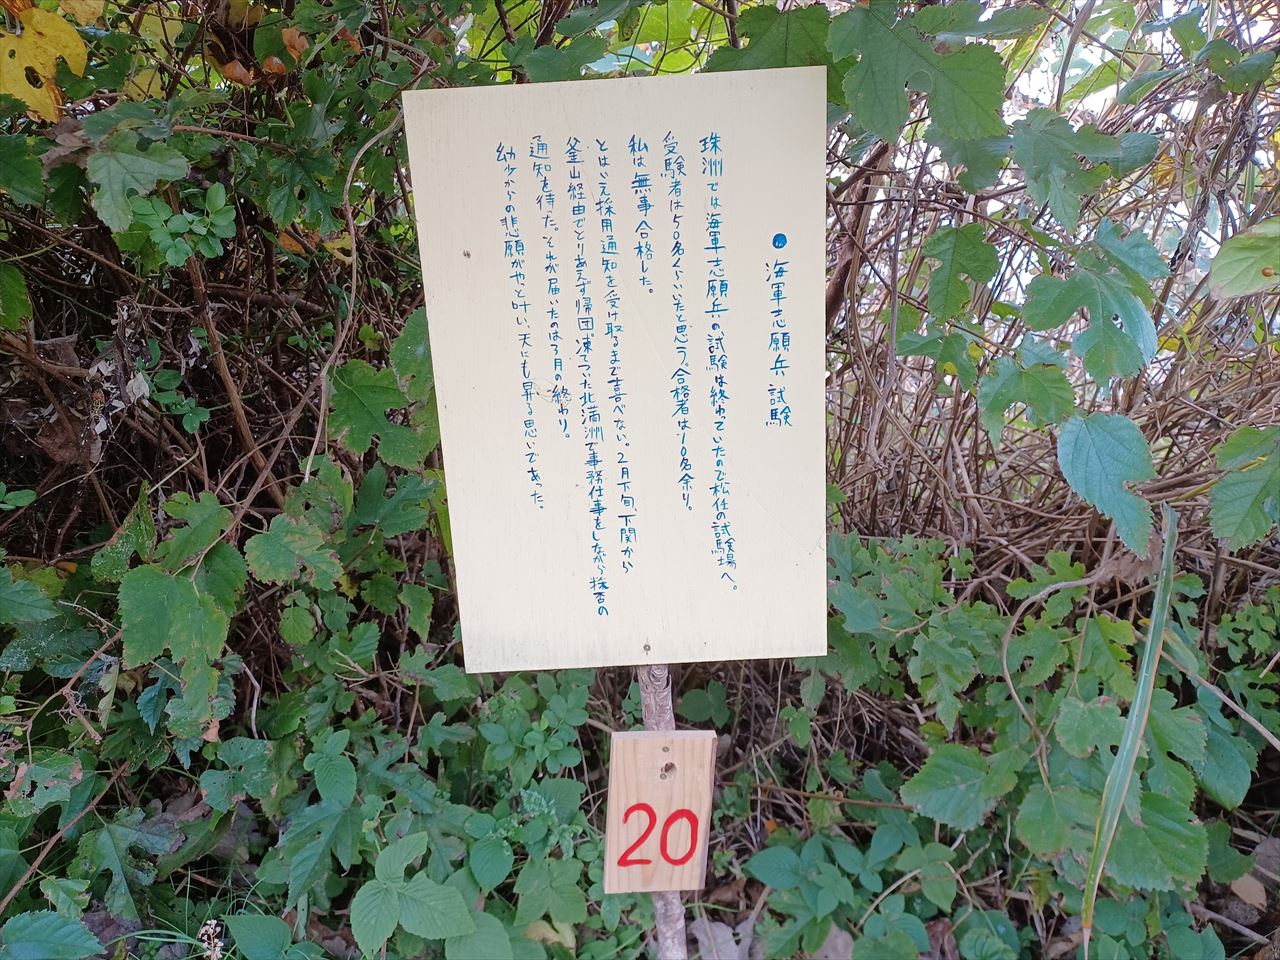 ●海軍志願兵試験
珠洲では海軍志願兵の試験は終わっていたので松任の試験場へ。
受験者は50名くらいいたと思う。合格者は10名余り。
私は無事合格した。
とはいえ採用通知を受け取るまで喜べない。2月下旬、下関から
釜山経由でとりあえず帰団凍てついた北満洲で事務仕事をしながら採否の
通知を待った。それが届いたのは3月の終わり。
幼少からの悲願がやっと叶い、天にも昇る思いであった。
20